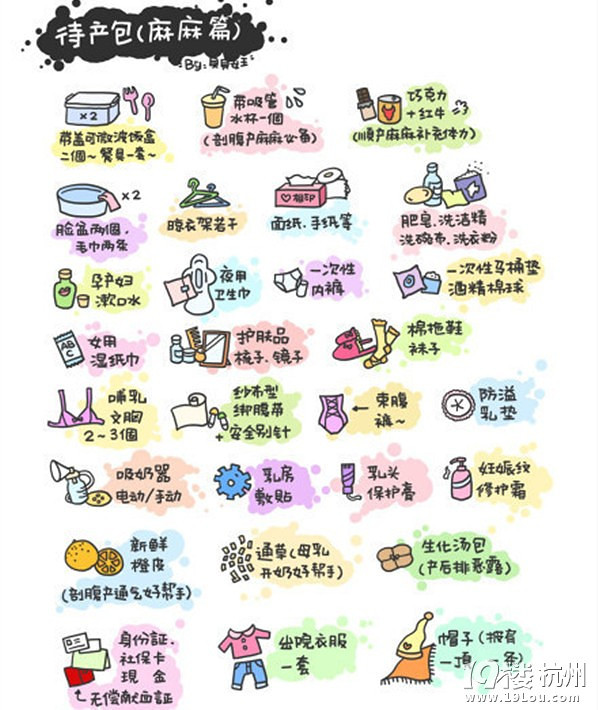 待产包(麻麻篇)
By:贝贝蛙
×2
带盖可微波饭盒
二個~餐具一套~
带吸管
水杯一個
(剖腹产麻麻必备)
巧克力
+红牛
(顺产麻麻补充体力)
×2
脸盆两個.
毛巾两条
晾衣架若干
相印
面纸.手纸等
肥皂.洗洁精
洗碗布.洗衣粉
孕产妇
漱口水
夜用
卫生巾
一次性
内裤
一次性马桶垫
酒精棉球
ABC
女用
湿纸巾
护肤品
梳子.镜子
棉拖鞋
袜子
哺乳
文胸
2~3個
纱布型
绑腹带
+安全别针
束腹
裤~
防溢
乳垫
吸奶器
电动/手动
乳房
敷贴
乳头
保护膏
妊娠纹
修护霜
新鲜
橙皮
(剖腹产通气好帮手)
通草(母乳
开奶好帮手)
生化汤包
(产后排恶露)
身份証.
社保卡
現金
无偿献血証
出院衣服
一套
帽子(披肩
一頂 一条)
19楼杭州
www.19lou.com